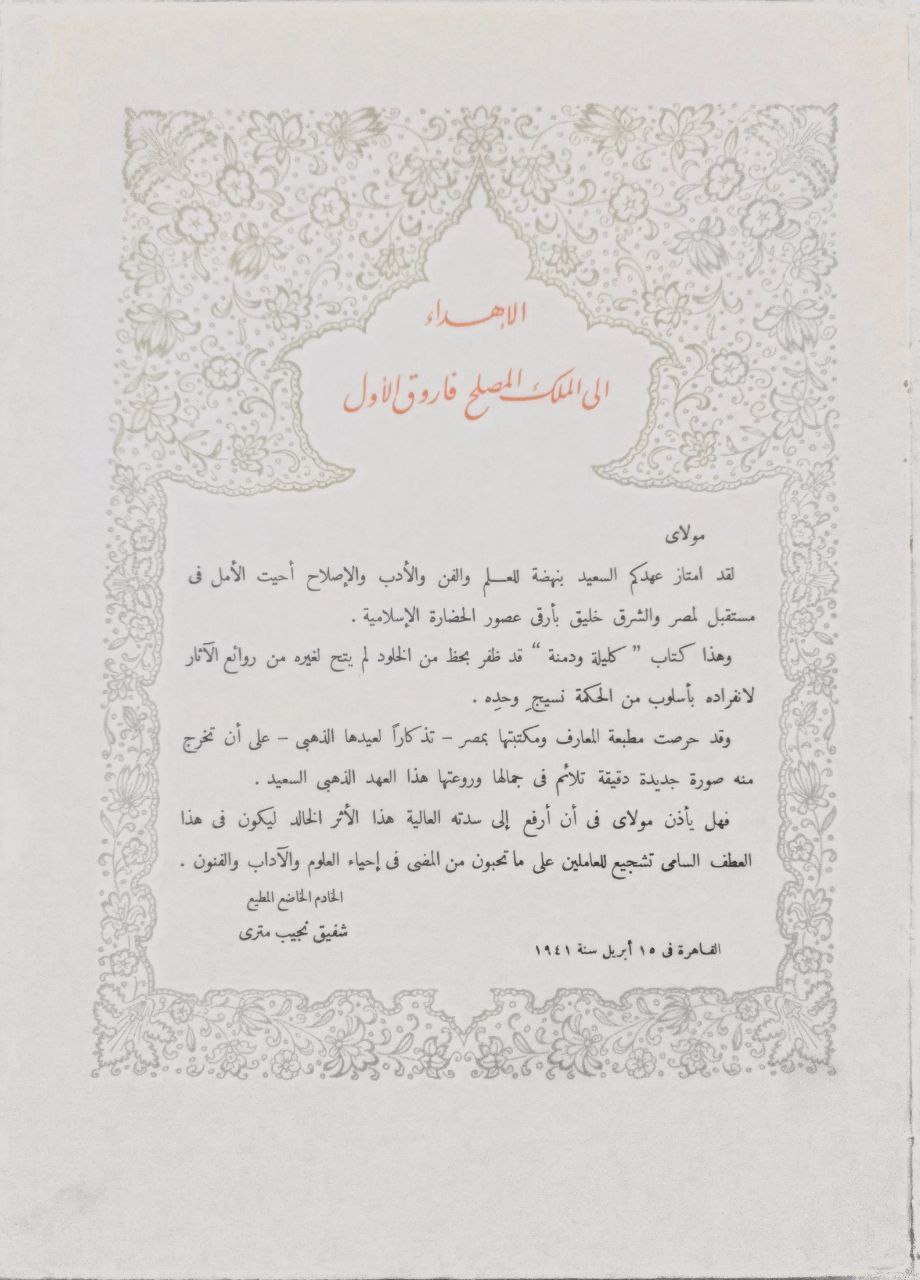 الإهداء
الى الملك المصلح فاروق الأول
مولاى
لقد امتاز عهدكم السعيد بنهضة للعلم والفن والأدب والإصلاح أحيت الأمل فى
مستقبل لمصر والشرق خليق بأرقى عصور الحضارة الإسلامية .
وهذا كتاب ” كليلة ودمنة “ قد ظفر بحظ من الخلود لم يتح لغيره من روائع الآثار
لانفراده بأسلوب من الحكمة نسيجِ وحدِه .
وقد حرصت مطبعة المعارف ومكتبتها بمصر – تذكاراً لعيدها الذهبى – على أن تخرج
منه صورة جديدة دقيقة تلائم فى جمالها وروعتها هذا العهد الذهبى السعيد .
فهل يأذن مولاى فى أن أرفع إلى سدته العالية هذا الأثر الخالد ليكون فى هذا
العطف السامى تشجيع للعاملين على ما تحبون من المضى فى إحياء العلوم والآداب والفنون .
الخادم الخاضع المطيع
شفيق نجيب مترى
القاهرة فى ١٥ أبريل سنة ١٩٤١